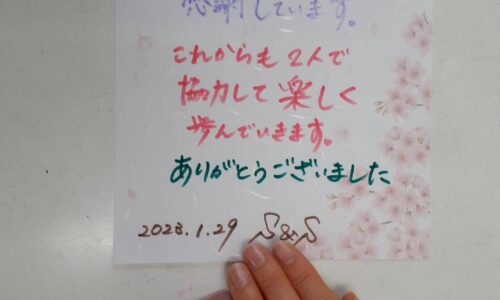 感謝しています。
これからも2人で
協力して楽しく
歩んでいきます。
ありがとうございました
2023.1.29 S&S